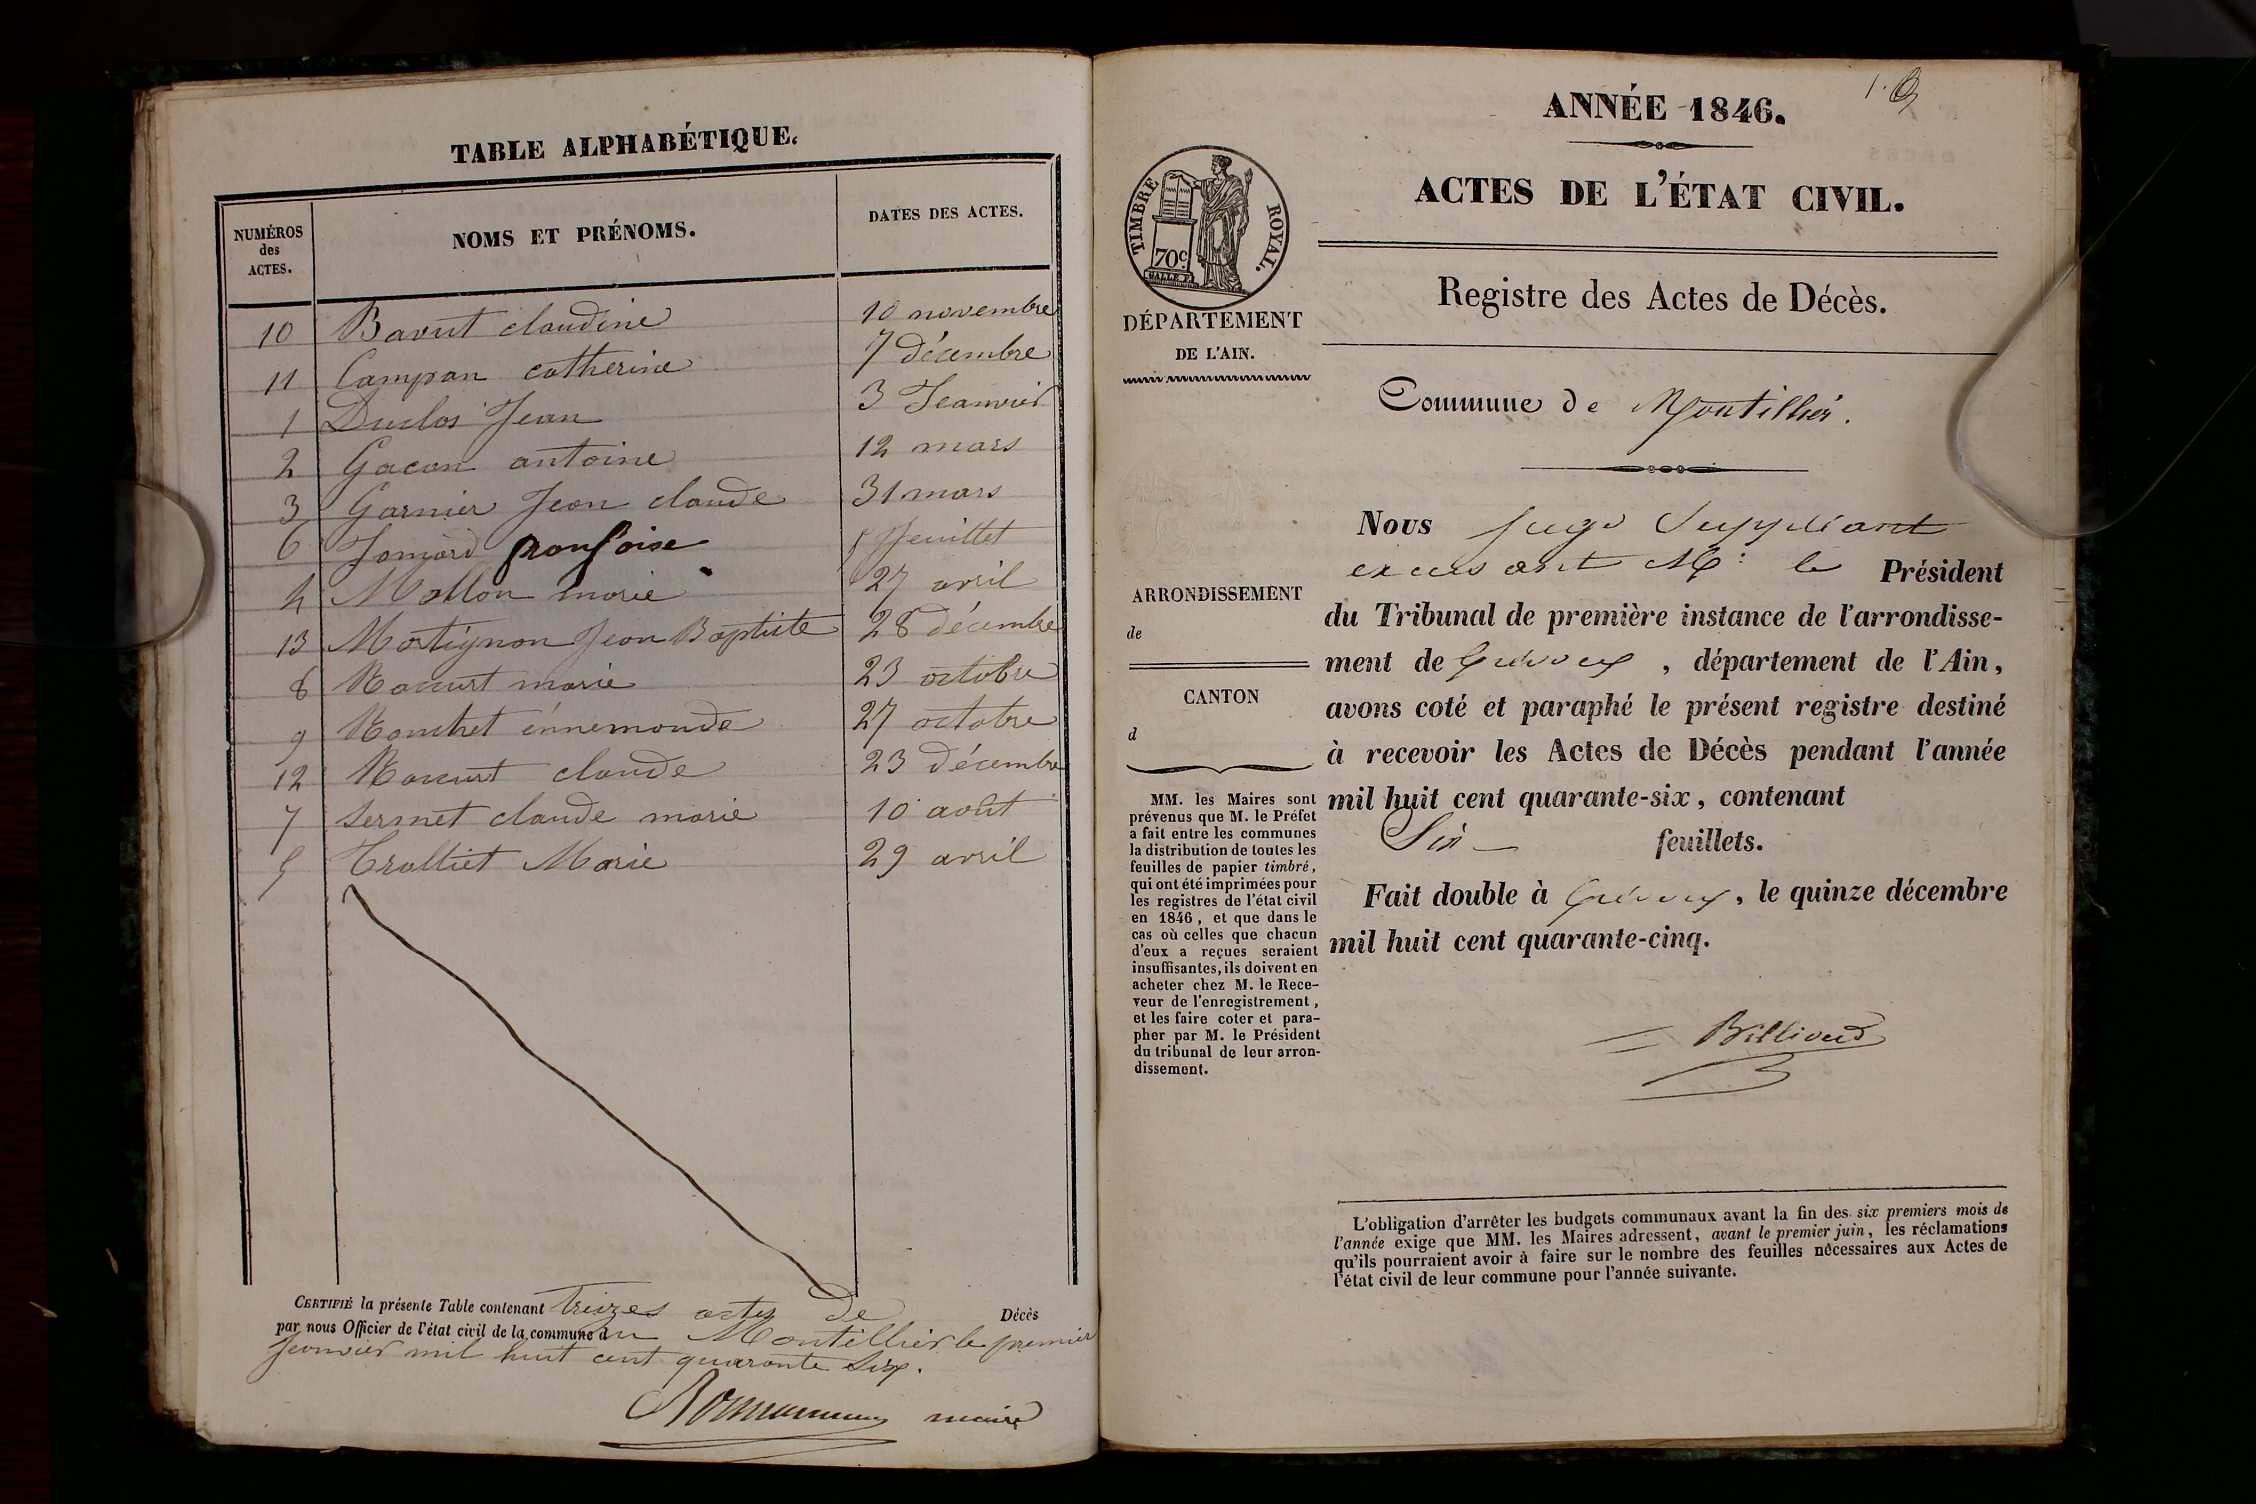 TABLE ALPHABÉTIQUE.
NUMÉROS
des
ACTES.
NOMS ET PRÉNOMS.
DATES DES ACTES.
10 Bavut claudine 10 novembre
11 Campan catherine 7 décembre
1 Duclos Jean 3 Jeanvier
2 Gacon antoine 12 mars
3 Garnier Jean claude 31 mars
6 Jomard fransoise Jeuillet
4 Mollon marie 27 avril
13 Mortignon Jean Baptiste 28 décembre
8 marie 23 octobre
9 énnemonde 27 octobre
12 claude 23 décembre
7 Sermet claude marie 10 août
5 Trolliet Marie 29 avril
CERTIFIÉ la présente Table contenant treizes actes de Décès
par nous Officier de l'état civil de la commune du Montellier le premier
Jeanvier mil huit cent quarante six.
maire
1.
ANNÉE 1846.
ACTES DE L'ÉTAT CIVIL.
TIMBRE ROYAL.
70c.
DÉPARTEMENT
DE L'AIN.
Registre des Actes de Décès.
Commune de Montillier.
ARRONDISSEMENT
de
CANTON
d
MM. les Maires sont
prévenus que M. le Préfet
a fait entre les communes
la distribution de toutes les
feuilles de papier timbré,
qui ont été imprimées pour
les registres de l'état civil
en 1846, et que dans le
cas où celles que chacun
d'eux a reçues seraient
insuffisantes, ils doivent en
acheter chez M. le Rece-
veur de l'enregistrement,
et les faire coter et para-
pher par M. le Président
du tribunal de leur arron-
dissement.
Nous Juge Suppléant
excusant Mr. le Président
du Tribunal de première instance de l'arrondisse-
ment de Trévoux, département de l'Ain,
avons coté et paraphé le présent registre destiné
à recevoir les Actes de Décès pendant l'année
mil huit cent quarante-six, contenant
Six feuillets.
Fait double à Trévoux, le quinze décembre
mil huit cent quarante-cinq.
L'obligation d'arrêter les budgets communaux avant la fin des six premiers mois de
l'année exige que MM. les Maires adressent, avant le premier juin, les réclamations
qu'ils pourraient avoir à faire sur le nombre des feuilles nécessaires aux Actes de
l'état civil de leur commune pour l'année suivante.